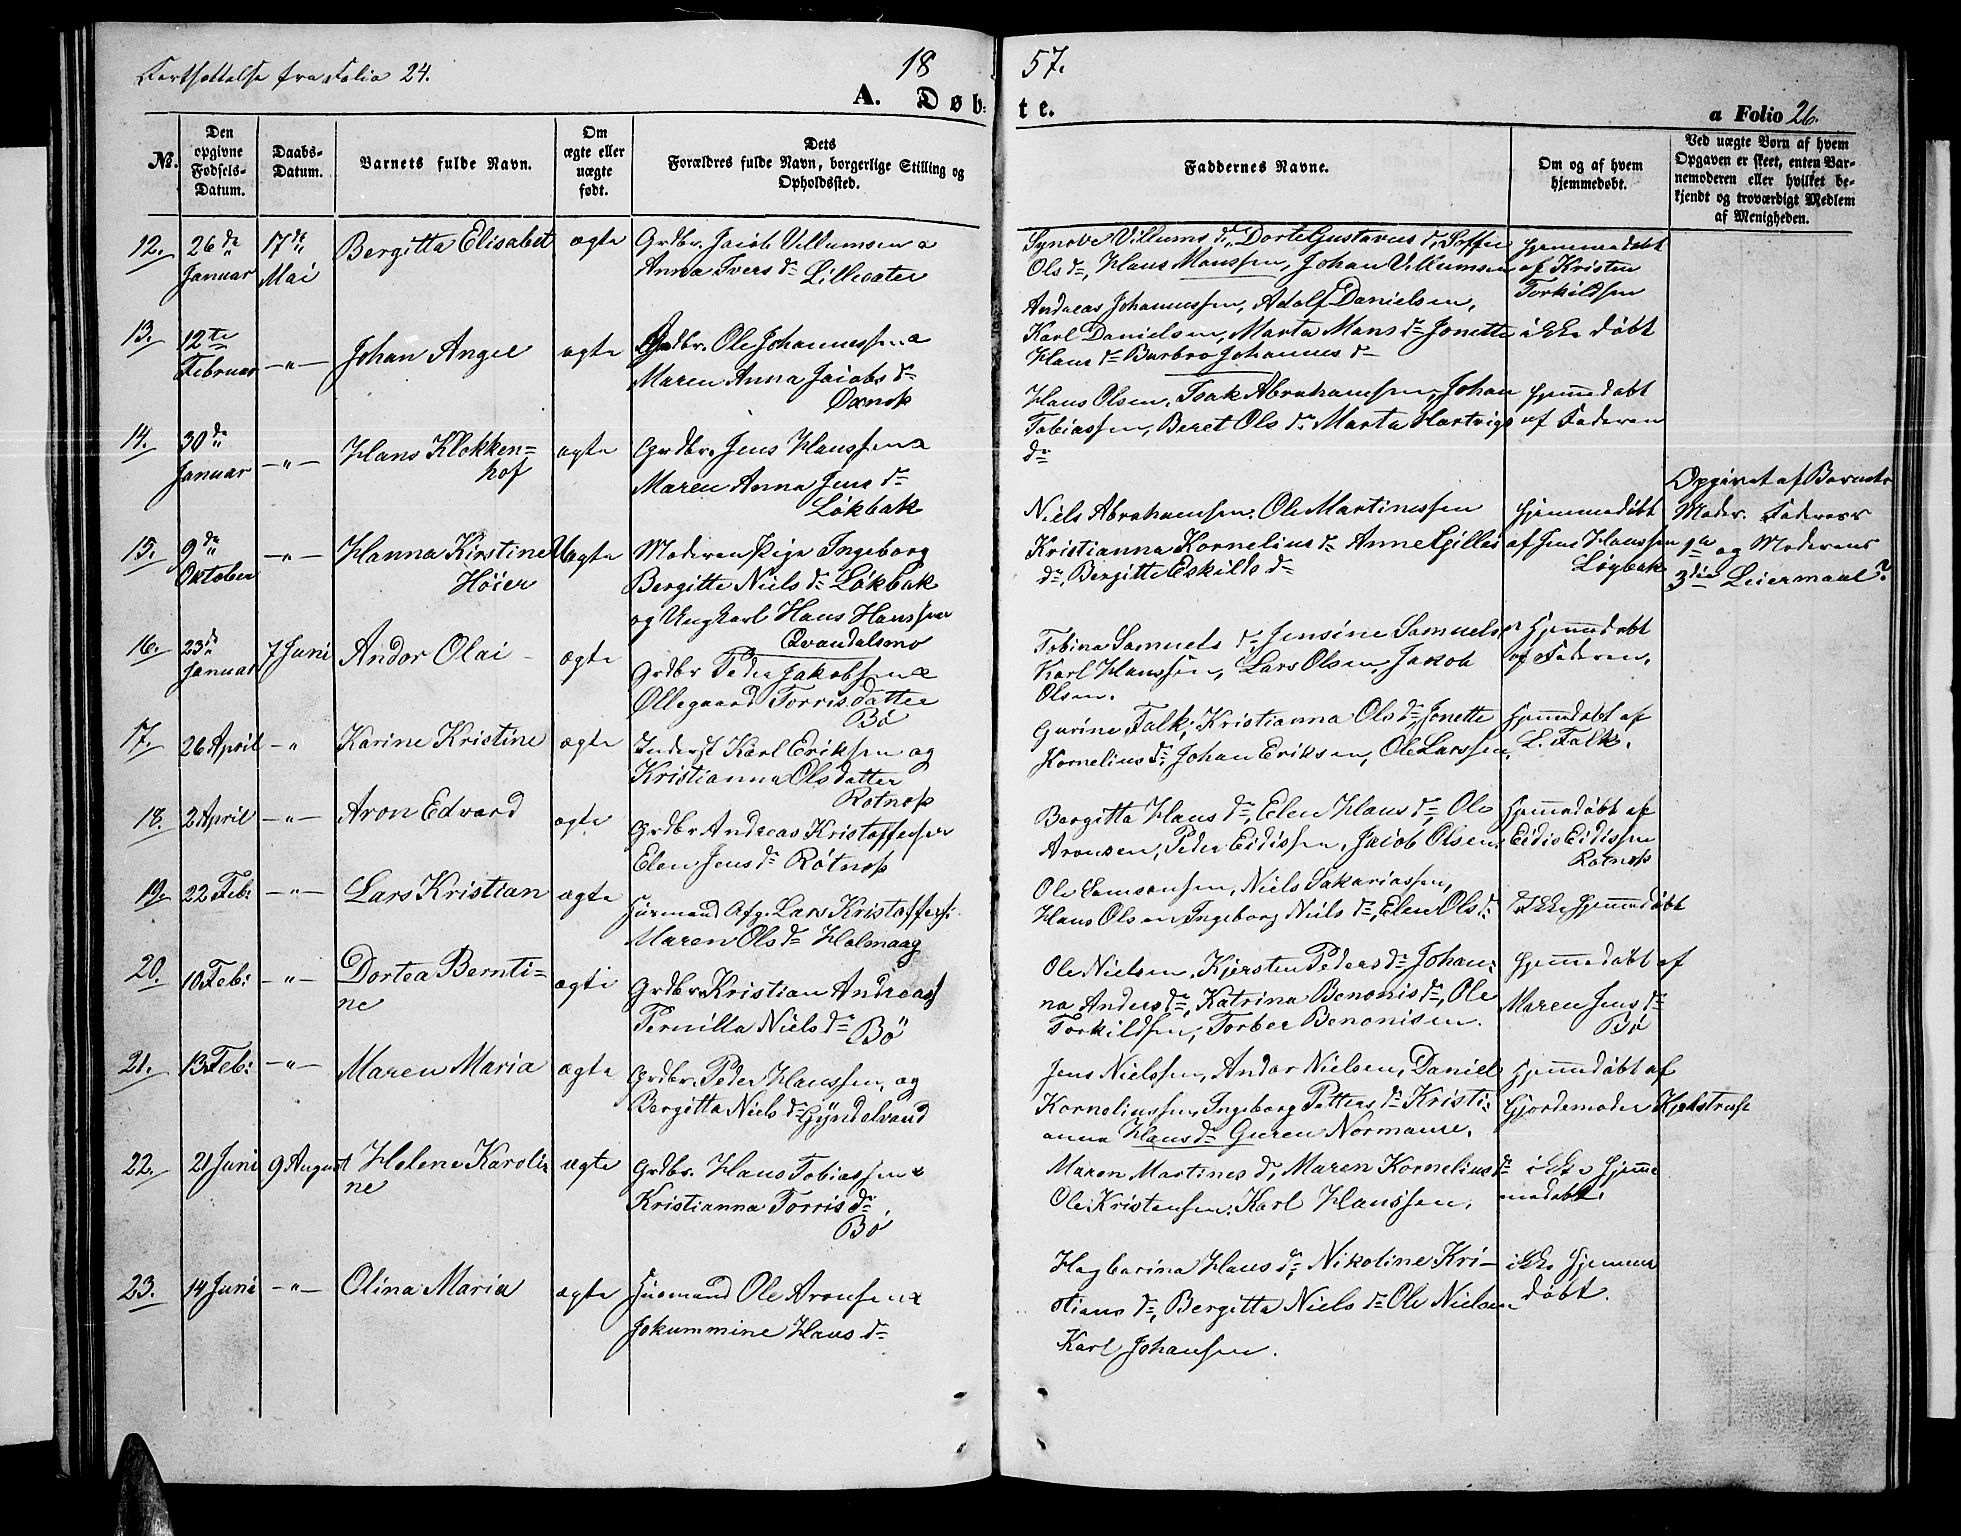 Fortsættelse fra Folio 24.
18 57.
A. Døb: te.
a Folio 26.
No.
Den opgivne Fødsels-Datum.
Daabs-Datum.
Barnets fulde Navn.
Om ægte eller uægte født.
Dets Forældres fulde Navn, borgerlige Stilling og Opholdssted.
Faddernes Navne.
Om og af hvem hjemmedøbt.
Ved uægte Børn af hvem Opgaven er skeet, enten Barnemoderen eller hvilket bekjendt og troværdigt Medlem af Menigheden.
12. 26de Januar 17de Mai Bergitta Elisabet ægte
Grdbr. Jacob Villumsen
Anna Ivers dr
Synove Villums dr, Dorte Gustavus dr,
Ols dr, Hans Monssen, Johan Villumsen
Andreas Johannessen, Adolf Danielsen,
hjemmedøbt
af Kristen
Torkildsen
13. 12te Februar —"— Johan Angel ægte
Grdbr. Ole Johannessen &
Maren Anna Jacobs dr
Oxnes
Karl Danielsen, Marta Mons dr Jonette
Hans dr Barbro Johannes dr
ikke døbt
14. 30de Januar —"— Hans Klokken=
hof ægte
Grdbr. Jens Hanssen &
Maren Anna Jens dr
Løkbak
Hans Olsen, Isak Abrahamsen, Johan
Tobiassen, Beret Ols dr Marta Hartvigs
dr
hjemmedøbt
af Faderen
15. 9de Oktober —"— Hanna Kirstine
Høier Uægte
Moderen Pige Ingeborg
Bergitte Niels dr Løkbak
og Ungkarl Hans Hanssen
Qvandalsmo
Niels Abrahamsen. Ole Martinussen
Kristianna Kornelius dr Anne Gilles
dr, Bergitte Eskilds dr
hjemmedøbt
af Jens Hanssen
Løgbak
Opgivet af Barnets
Moder. Faderens
1te og Moderens
3die Leiermaal?
16. 23de Januar 7 Juni Andor Olai ægte
Grdbr Peder Jakobsen &
Ollegaard Torrisdatter
Bø
Tobina Samuels dr, Jensine Samuels dr
Karl Hanssen, Lars Olsen, Jakob
Olsen.
hjemdøbt
af Faderen.
17. 26 April —" Karine Kristine ægte
Inderst Karl Eriksen og
Kristianna Olsdatter
Rotnes
Gurine Falk, Kristianna Ols dr, Jonette
Kornelius dr, Johan Eriksen, Ole Larssen,
hjemdøbt af
L. Falk.
18. 2 April —"— Aron Edvard ægte
Grdbr Andreas Kristoffersen
Elen Jens dr Røtnes
Bergitta Hans dr, Elen Hans dr Ole
Aronsen, Peder Eidissen, Jacob Olsen
hjemdøbt af
Eidis Eidissen
Rotnes
19. 22 Feb: —"— Lars Kristian ægte
Husmand Afg. Lars Kristoffers.
Maren Ols dr Holmaag
Ole Samsonsen, Niels Sakariassen,
Hans Olsen Ingeborg Niels dr, Elen Ols dr
Ikke hjemmedøbt
20. 10 Feb: —"— Dortea Bernti-
ne ægte
Grdbr Kristian Andreass
Pernilla Niels dr Bö
Ole Nielsen, Kjersten Peders dr Johan-
na Anders dr, Katrina Benonis dr, Ole
Torkildsen, Torber Benonisen.
hjemmedøbt af
Maren Jens dr
Bö
21. 13 Feb: —"— Maren Maria ægte
Grdbr. Peder Hanssen, og
Bergitta Niels dr
Jens Nielssen, Andor Nielsen, Daniel
Korneliussen, Ingeborg Petters dr Kristi-
anna Hans dr Guren Normanse.
hjemmedøbt af
Gjordemoder
22. 21 Juni 9 August Helene Karoli
ne ægte
Grdbr. Hans Tobiassen &
Kristianna Torris dr
Bö
Maren Martines dr, Maren Kornelius dr
Ole Kristensen, Karl Hanssen,
ikke hjemme
medøbt.
23. 14 Juni —"— Olina Maria ægte
Husmand Ole Aronsen &
Jokummine Hans dr
Hagbarina Hans dr, Nikoline Kri-
stians dr, Bergitta Niels dr Ole Nielsen
Karl Johansen.
ikke hjemme
døbt.